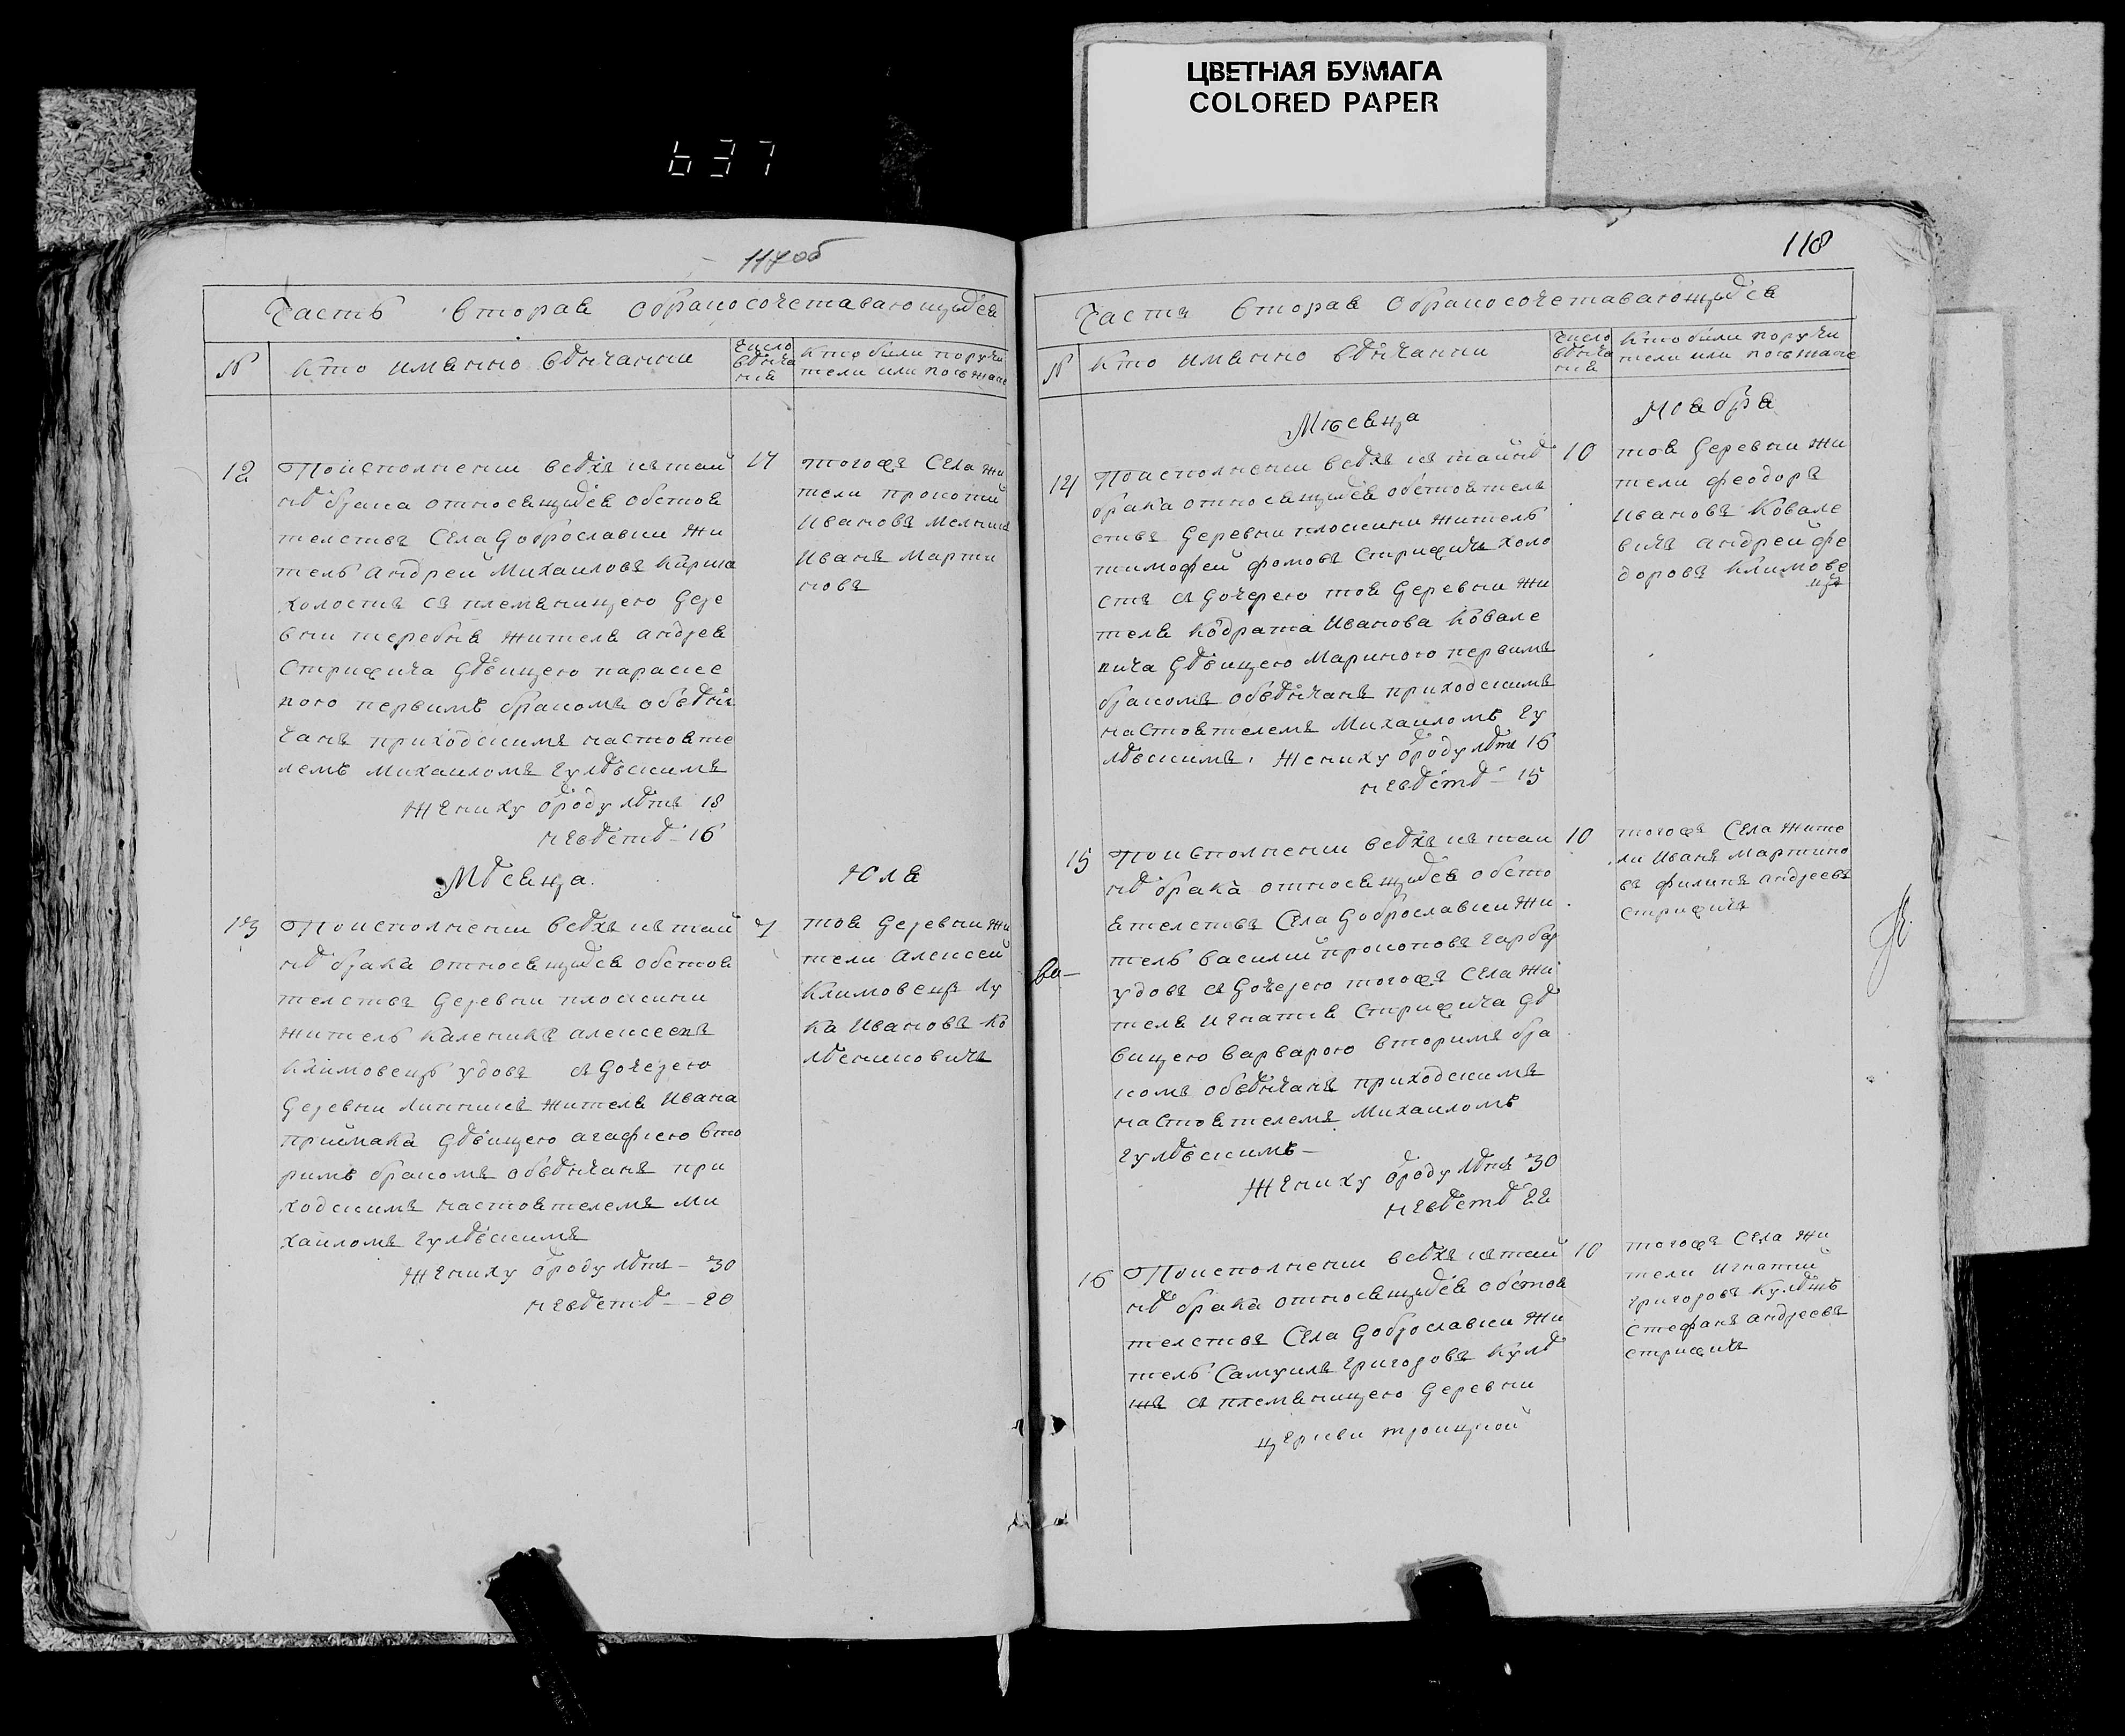 ЦВЕТНАЯ БУМАГА
COLORED PAPER
637
117об
Часть вторая обракосочетавающихся
№
кто имянно вѣнчанни
число
вѣнча
ния
кто були поручи
тели или посѣжане
12
По исполнении всѣхъ къ тай
нѣ брака относящихся обстоя
телствъ села Доброславки жи
тель Андрей Михаиловъ
холостъ съ племяницею дере
вни теребня жителя андрея
Стрижича дѣвицею параске
вою первимъ бракомъ обвѣн
чанъ приходскимъ настояте
лемъ Михаиломъ Гулѣвскимъ
Жениху отроду лѣтъ 18
невѣстѣ - 16
17
тогожъ села жи
тели прокопий
Ивановъ
Иванъ Марти
новъ
Мѣсяца
Юля
13
По исполнении всѣхъ къ тай
нѣ брака относящихся обстоя
телствъ деревни плоскини
житель Каленикъ алексеевъ
Климовецъ удовъ съ дочерею
деревни жителя Ивана
приймака дѣвицею агафиею вто
римъ бракомъ обвѣнчанъ при
ходскимъ настоятелемъ Ми
хаиломъ Гулѣвскимъ
Жениху отроду лѣтъ - 30
невѣстѣ - - 20
7
тоя деревни жи
тели Алексей
Климовецъ Лу
ка Ивановъ Ко
лѣениковичъ
118
Часть вторая обракосочетавающихся
№
кто имянно вѣнчанни
число
вѣнча
ния
кто були поручи
тели или посѣжане
Мѣсяца
Ноября
14
По исполнении всѣхъ къ тайнѣ
брака относящихся обстоятель
ствъ деревни плоскини житель
тимофей фомовъ Стрижичъ холо
стъ съ дочерею тоя деревни жи
теля Кодрата Иванова Ковале
вича дѣвицею Мариною первимъ
бракомъ обвѣнчанъ приходскимъ
настоятелемъ Михаиломъ Гу
лѣвскимъ. Жениху отроду лѣтъ 16
невѣстѣ - 15
10
тоя деревни жи
тели феодоръ
Ивановъ Ковале
вичъ андрей фе
доровъ Климове
цъ
15
По исполнении всѣхъ къ тай
нѣ брака относящихся обсто
ятелствъ села Доброславки жи
тель василий прокоповъ гарбар
удовъ съ дочерею тогожъ села жи
теля Игнатия Стрижича дѣ
вицею варварою вторимъ бра
комъ обвѣнчанъ приходскимъ
настоятелемъ Михаиломъ
Гулѣвскимъ -
Жениху отроду лѣтъ 30
невѣстѣ 22
10
тогожъ села жите
ли Иванъ Мартино
въ филипъ андреевъ
стрижичъ
16
По исполнении всѣхъ къ тай
нѣ брака относящихся обстоя
телствъ села Доброславки жи
тель Самуилъ григоровъ Кулѣ
шъ съ племяницею деревни
церкви троицкой
10
тогожъ села жи
тели Игнатий
григоровъ Кулѣшъ
стефанъ андреевъ
стрижичъ